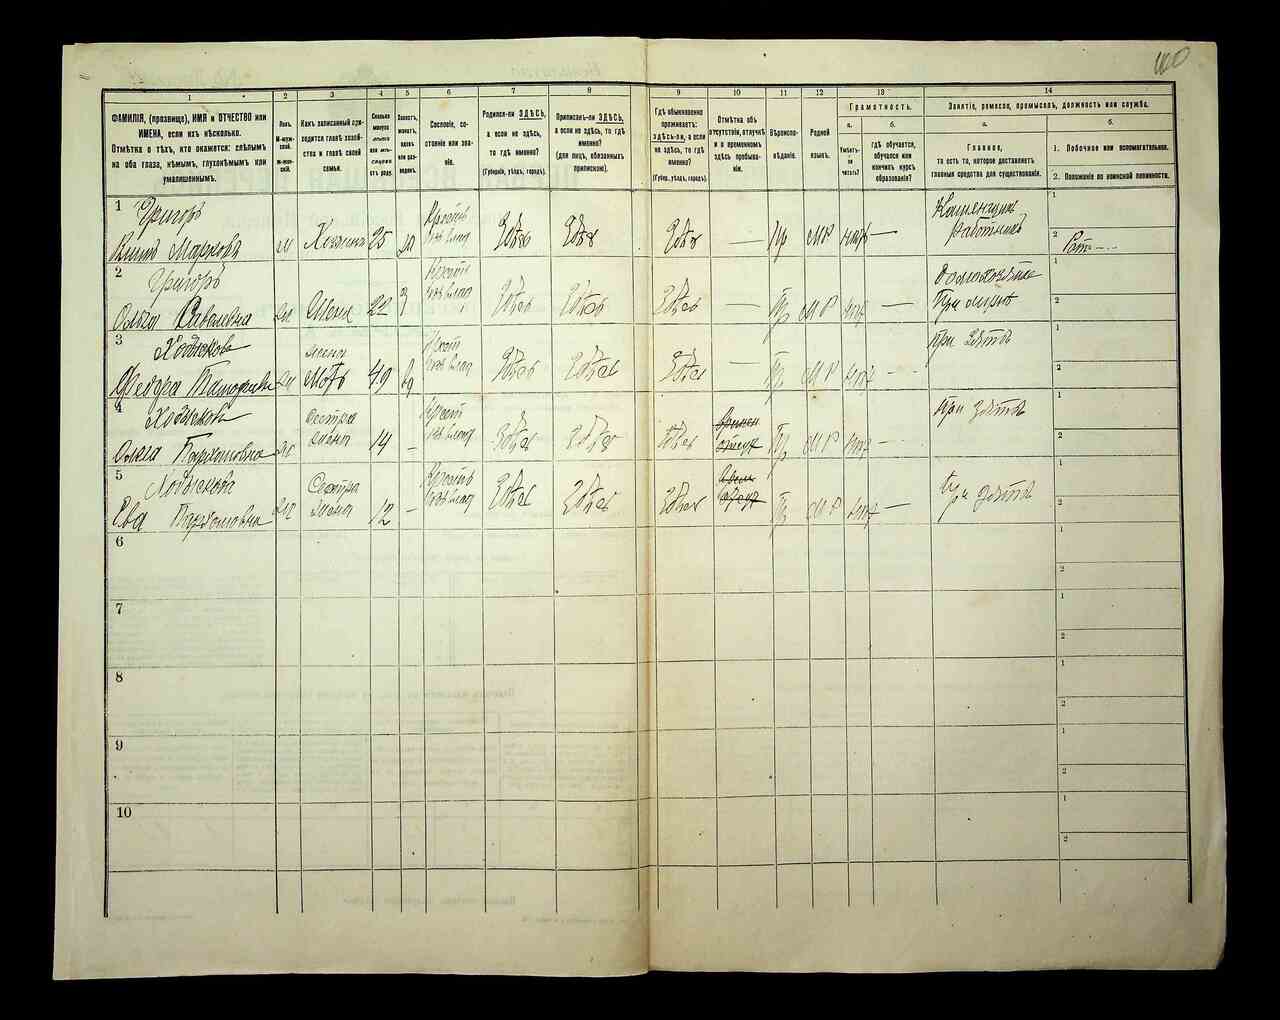 100
1 2 3 4 5 6 7 8 9 10 11 12 13 14
ФАМИЛІЯ, (прозвище), ИМЯ и ОТЧЕСТВО или
ИМЕНА, если ихъ нѣсколько.
Отмѣтка о тѣхъ, кто окажется: слѣпымъ
на оба глаза, нѣмымъ, глухонѣмымъ или
умалишеннымъ.
Полъ.
М-муж-
ской.
Ж-жен-
скій.
Какъ записанный при-
ходится главѣ хозяй-
ства и главѣ своей
семьи.
Сколько
минуло
лѣтъ
или мѣ-
сяцевъ
отъ роду.
Холостъ,
женатъ,
вдовъ
или раз-
веденъ.
Сословіе, со-
стояніе или зва-
ніе.
Родился-ли ЗДѢСЬ,
а если не здѣсь,
то гдѣ именно?
(Губернія, уѣздъ, городъ).
Приписанъ-ли ЗДѢСЬ,
а если не здѣсь, то гдѣ
именно?
(для лицъ, обязанныхъ
припискою).
Гдѣ обыкновенно
проживаетъ:
здѣсь-ли, а если
не здѣсь, то гдѣ
именно?
(Губер., уѣздъ, городъ).
Отмѣтка объ
отсутствіи, отлучкѣ
и о временномъ
здѣсь пребыва-
ніи.
Вѣроиспо-
вѣданіе.
Родной
языкъ.
Грамотность.
а.
Умѣетъ-
ли
читать?
б.
Гдѣ обучается,
обучался или
кончилъ курсъ
образованія?
Занятіе, ремесло, промыселъ, должность или служба.
а.
Главное,
то есть то, которое доставляетъ
главныя средства для существованія.
б.
1. Побочное или вспомогательное.
2. Положеніе по воинской повинности.
1 Григоръ
Марковъ м Хозяинъ 25 Здѣсь Здѣсь Здѣсь — Пр МР нѣтъ —
Работникъ
2 Григоръ
Ольга жс Жена 22 з Здѣсь Здѣсь Здѣсь — Пр МР нѣтъ —
При мужѣ
3 Ходыкова жены
Феодра жс Мать 49 вд Здѣсь Здѣсь Здѣсь — Пр МР нѣтъ —
При Зятѣ
4 Ходыкова Сестра
Пархомовна жс жены 14 — Здѣсь Здѣсь Здѣсь Пр МР нѣтъ —
При Зятѣ
5 Ходыкова Сестра
Ева Пархомовна жс жены 12 — Здѣсь Здѣсь Здѣсь Пр МР нѣтъ —
При Зятѣ
6
7
8
9
10